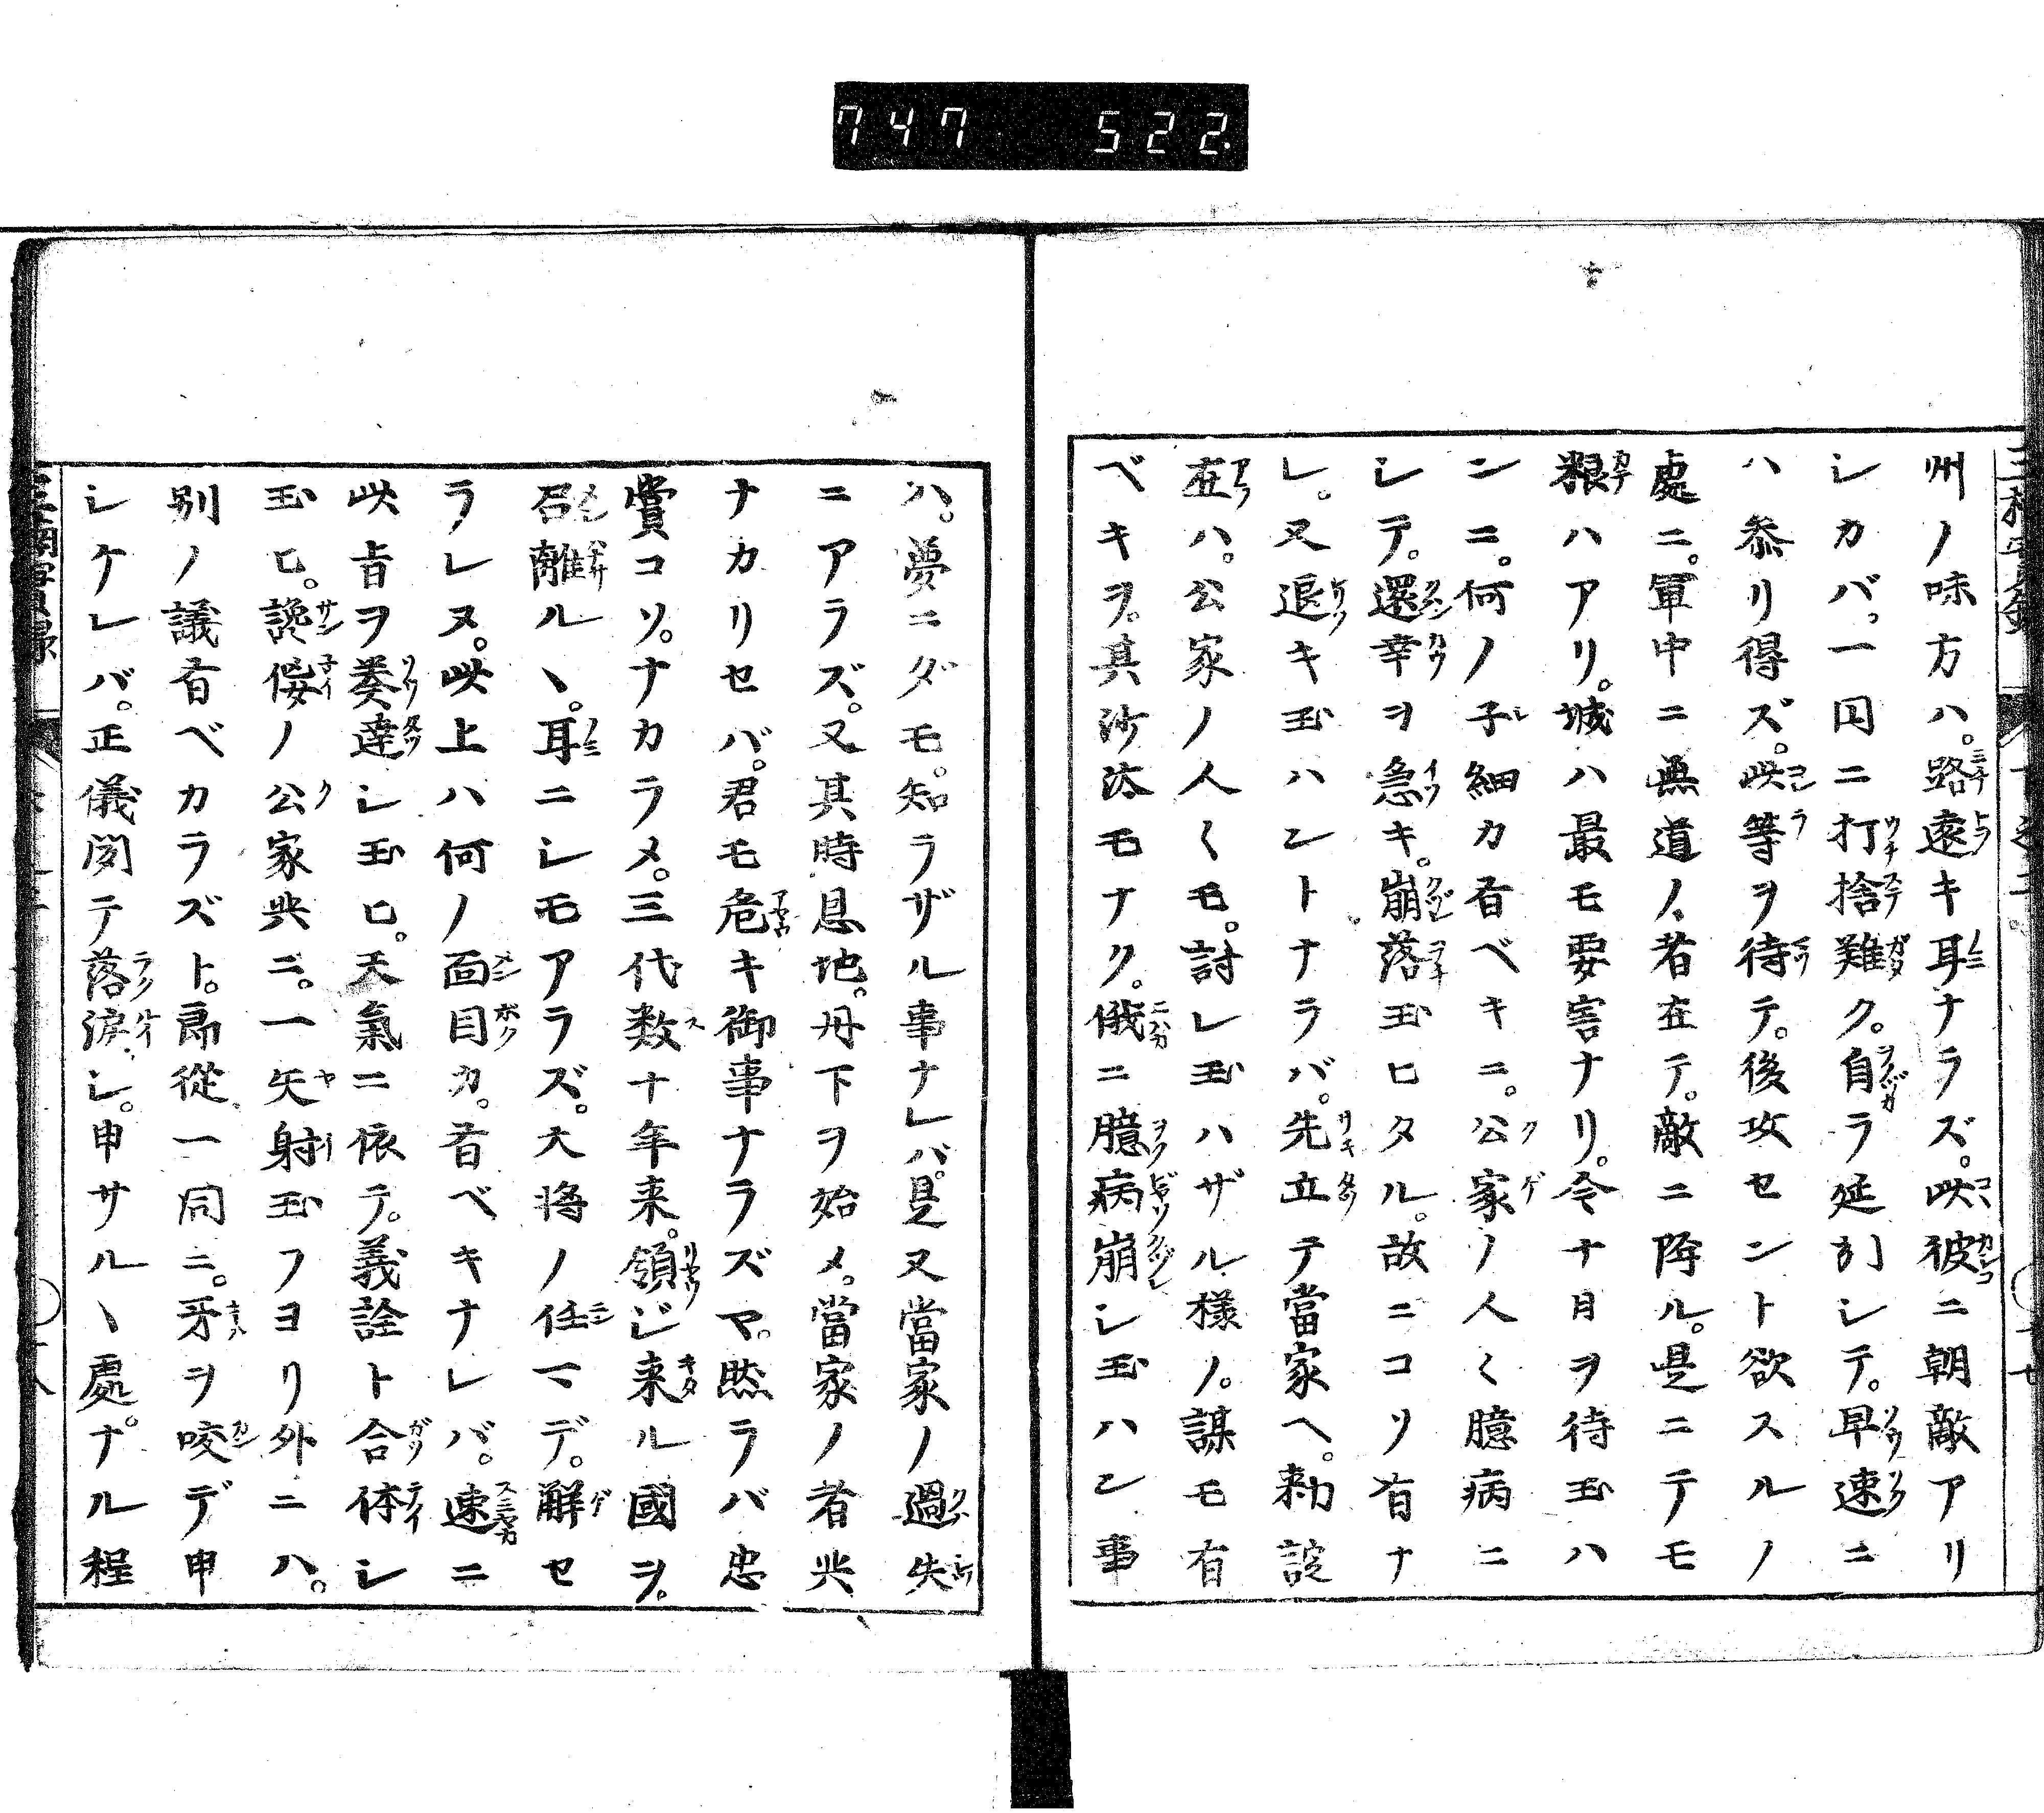 747 522.
州ノ味方ハ。路遠キ耳ナラズ。此彼ニ朝敵アリ
シカバ。一円ニ打捨難ク。自ラ延引シテ。早速ニ
ハ参リ得ズ。此等ヲ待テ。後攻セント欲スルノ
處ニ。軍中ニ無道ノ者在テ。敵ニ降ル。是ニテモ
粮ハアリ。城ハ最モ要害ナリ。今十月ヲ待玉ハ
ンニ。何ノ子細カ有ベキニ。公家ノ人〱臆病ニ
シテ。還幸ヲ急キ。崩落玉ヒタル。故ニコソ有ナ
レ。又退キ玉ハントナラバ。先立テ當家ヘ。勅諚
在ハ。公家ノ人〱モ。討レ玉ハザル様ノ。謀モ有
ベキヲ。其沙汰モナク。俄ニ臆病崩シ玉ハン事
ハ。夢ニダモ。知ラザル事ナレバ。是又當家ノ過失
ニアラズ。又其時恩地。丹下ヲ始メ。當家ノ者共
ナカリセバ。君モ危キ御事ナラズヤ。然ラバ忠
賞コソ。ナカラメ。三代数十年来。領ジ来ル國ヲ。
召離ルヽ。耳ニシモアラズ。大将ノ任マデ。解セ
ラレヌ。此上ハ何ノ面目カ。有ベキナレバ。速ニ
此旨ヲ奏達シ玉ヒ。天氣ニ依テ。義詮ト合体シ
玉ヒ。讒佞ノ公家共ニ。一矢射玉フヨリ外ニハ。
別ノ議有ベカラズト。郎從一同ニ。牙ヲ咬デ申
シケレバ。正儀聞テ落涙シ。申サルヽ處。ナル程